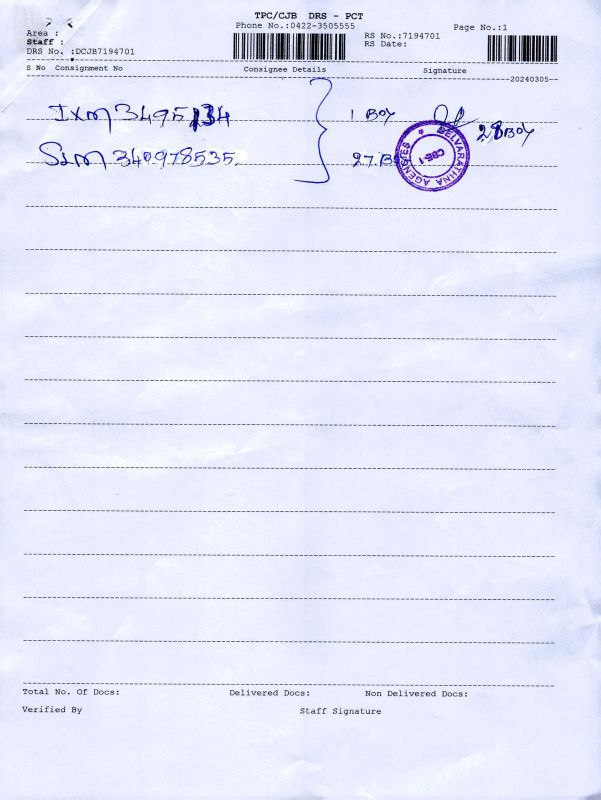 TPC/CJB DRS - PCT
Phone No.:0422-3505555
Page No.:1
Area :
Staff :
DRS No. :DCJB7194701
RS No.:7194701
RS Date:
S No Consignment No Consignee Details Signature
20240305
IXM 3495134 1 BOX
28 BOX
SIM 340978535. 27. BOX
SELVARATHNA AGENCIES
CBE-1
Total No. Of Docs: Delivered Docs: Non Delivered Docs:
Verified By Staff Signature